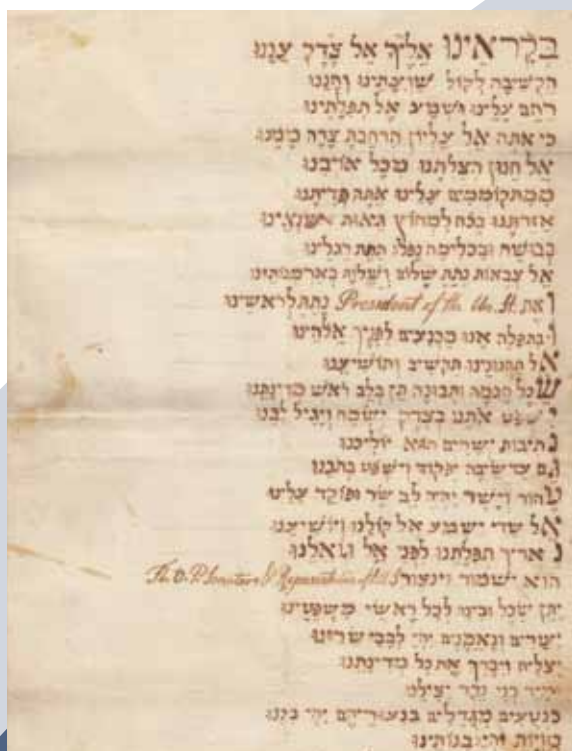 בְּקָרְאֵינוּ אֵלֶיךָ אֵל צֶדֶק עֲנֵנוּ
הקשיבה לקול שועתינו וחננו
רחם עלינו ושמע אל תפלתינו
כי אתה אל עליון הרחבת צרה ממנו
אל חנון הצלתנו מכל אויבנו
ממתקוממים עלינו אתה פדיתנו
אזרתנו בכח למחוץ גיאות שנאינו
בבושה ובכלימה נפלו תחת רגלינו
אל צבאות נתת שלום ושלוה בארמנותינו
ואת President of the Un. St. נתת לראשינו
ובתפלה אנו נכנעים לפניך אלהינו
אל תחנונינו תקשיב ותושיענו
שכל חכמה ותבונה תן בלב ראש מדינתנו
ישפט אתנו בצדק ישמח ויגיל לבנו
נתיבות ישרים הוא יוליכנו
גם עד שיבה יפקוד וישפט בתכנו
טהור וישר יהיה לב שר ופוקד עלינו
אל שדי ישמע אל קולנו ויושיענו
נאריך תפלתנו לפני אל גואלנו
הוא ישמור וינצור The V. P. Senators & Representatives of the
יתן שכל ובינה לכל ראשי משפטינו
ישרים ונאמנים יהיו לבבי שרינו
יצליח ויברך את כל מדינתנו
בני נכר יצילנו
כנטעים מגדלים בנעוריהם יהיו בנינו
כזויות יהיו בנותינו